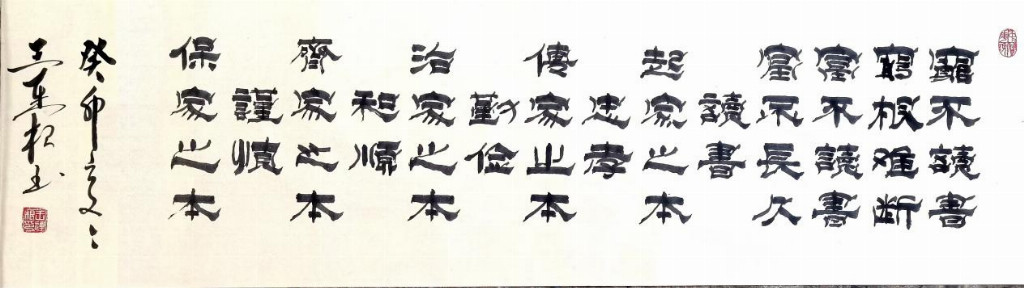 窮不讀書
窮根难断
富不讀書
富不長久
讀書
起家之本
忠孝
傳家之本
勤俭
治家之本
和順
齊家之本
謹慎
保家之本
癸卯